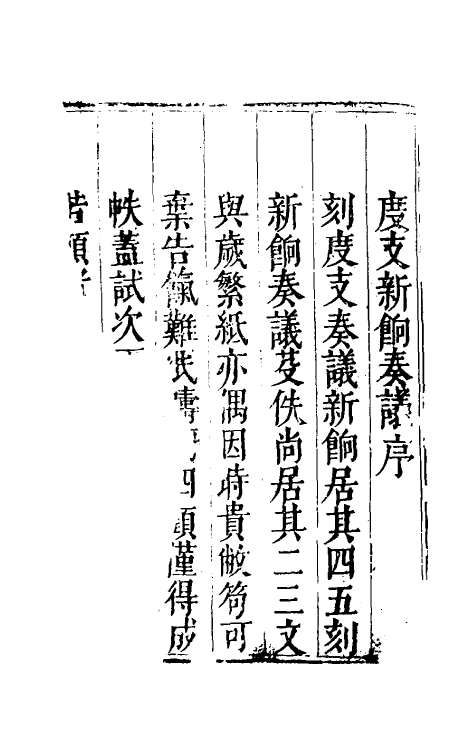 度支新餉奏議序
刻度支奏議新餉居其四五刻
新餉奏議芟佚尚居其二三文
與歲繁紙亦偶因時貴敝笱可
棄告餼難
四頭僅得成
帙蓋試次